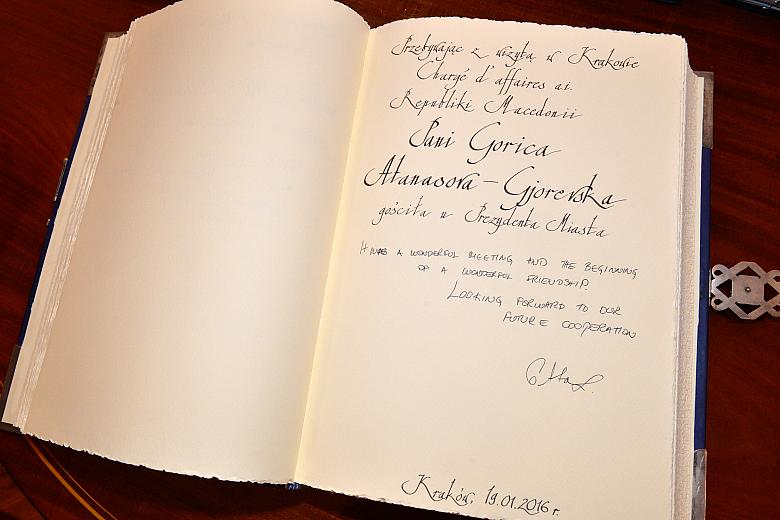 Przebywając z wizytą w Krakowie
Chargé d'affaires a.i.
Republiki Macedonii
Pani Gorica
Atanasova – Gjorevska
gościła u Prezydenta Miasta
IT WAS A WONDERFUL MEETING AND THE BEGINNING
OF A WONDERFUL FRIENDSHIP.
LOOKING FORWARD TO OUR
FUTURE COOPERATION
Kraków, 19.01.2016 r.